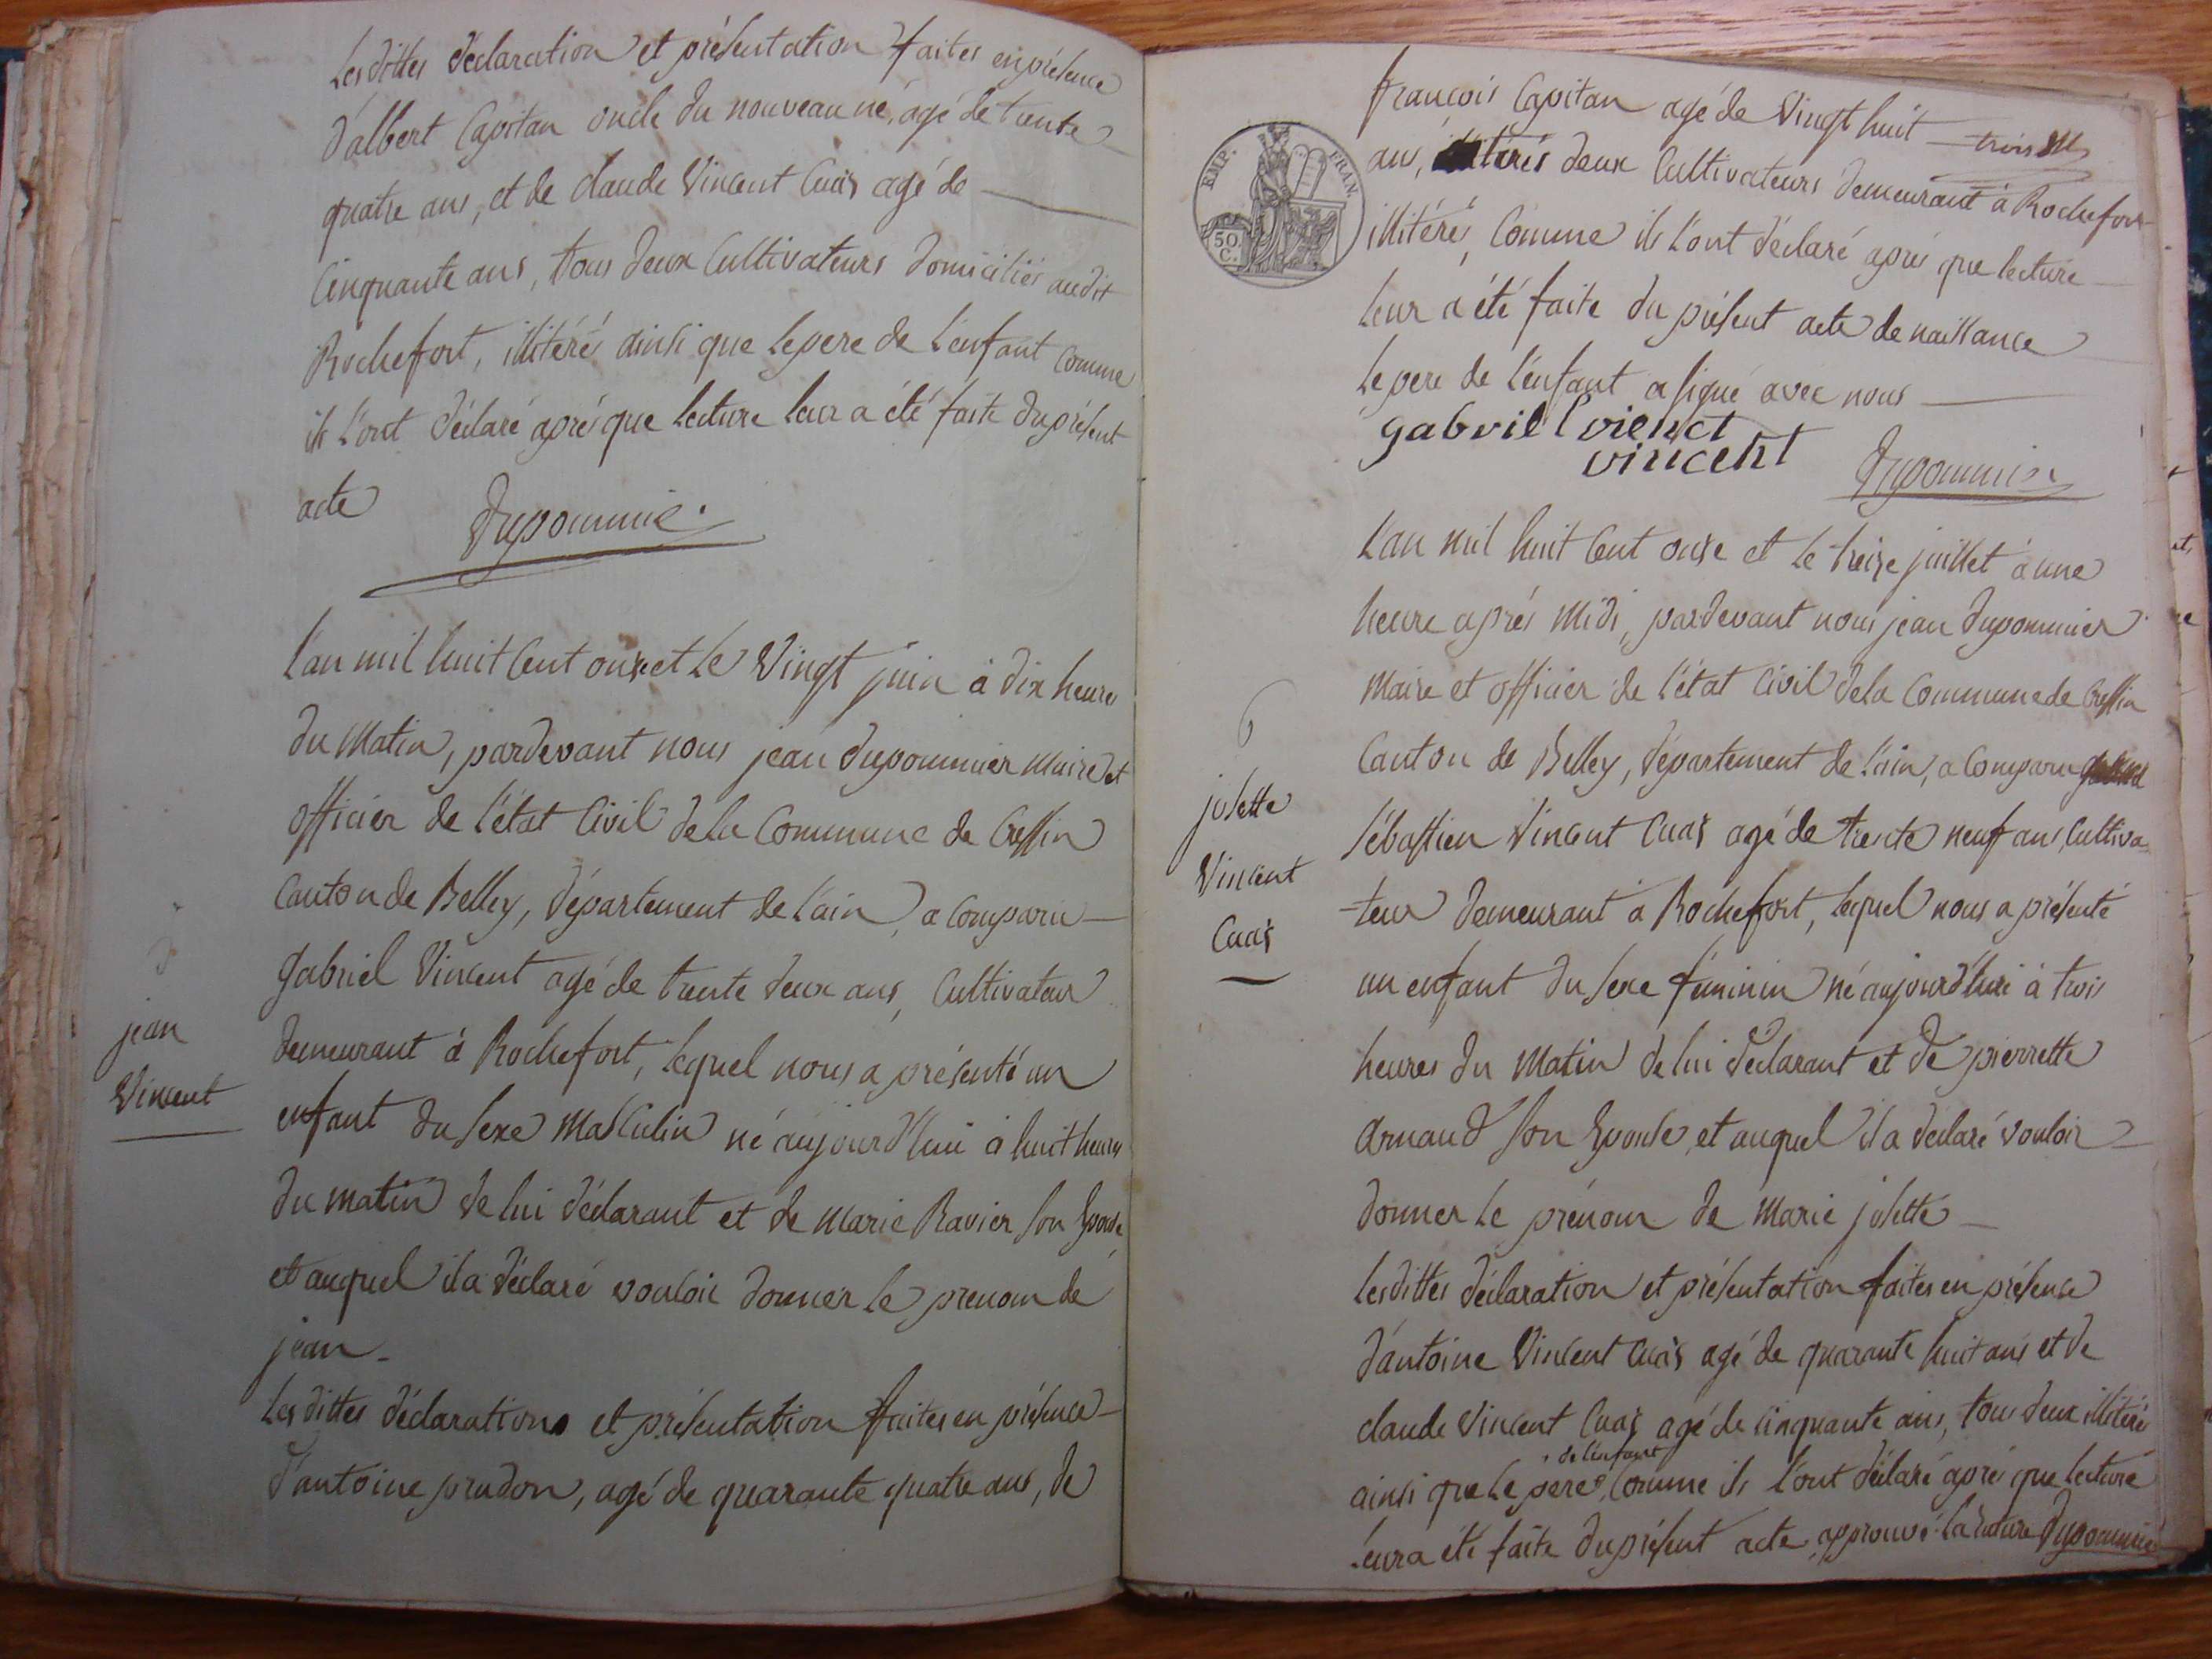 Lesdittes déclaration et présentation faites en présence
d'albert Capitan oncle du nouveau né, agé de trente
quatre ans, et de claude Vincent Cuas agé de
Cinquante ans, tous deux Cultivateurs domiciliés audit
Rochefort, illitérés ainsi que le pere de l'enfant comme
ils l'ont déclaré après que lecture leur a été faite du présent
acte
Dupommie.
L'an mil huit Cent onze et Le Vingt juin à dix heures
du Matin, pardevant nous jean dupommier Maire et
officier de l'état Civil de la Commune de Cressin
Canton de Belley, département de l'ain, a Comparu
Gabriel Vincent agé de trente deux ans, Cultivateur
demeurant à Rochefort, lequel nous a présenté un
enfant du sexe Masculin né aujourd'hui à huit heures
du matin de lui déclarant et de Marie Ravier son Epouse
et auquel il a déclaré vouloir donner le prenom de
jean
jean
Vincent
Lesdittes déclarations et présentation faites en présence
d'antoine prudon, agé de quarante quatre ans, de
françois Capitan agé de Vingt huit
trois
ans, deux Cultivateurs demeurant à Rochefort
illitérés, Comme ils l'ont déclaré après que lecture
leur a été faite du présent acte de naissance
Le pere de l'enfant a signé avec nous
EMP. FRAN.
50. C.
gabriel vienct
vincent
Dupommier
L'an mil huit Cent onze et Le treize juillet à une
heure après Midi, pardevant nous jean dupommier
Maire et officier de l'état Civil de la Commune de Cressin
Canton de Belley, département de l'ain, a Comparu
Sébastien Vincent Cuas agé de trente neuf ans, Cultiva-
-teur demeurant à Rochefort, lequel nous a présenté
un enfant du sexe féminin né aujourd'hui à trois
heures du Matin de lui déclarant et de pierrette
Arnaud son Epouse, et auquel il a déclaré vouloir
donner Le prénom de Marie josette
6
josette
Vincent
Cuas
Lesdittes déclaration et présentation faites en présence
d'antoine Vincent Cuas agé de quarante huit ans et de
claude Vincent Cuas agé de Cinquante ans, tous deux illitérés
de l'enfant
ainsi que Le pere Comme ils l'ont déclaré après que lecture
leur a été faite du présent acte, approuvé la rature Dupommie